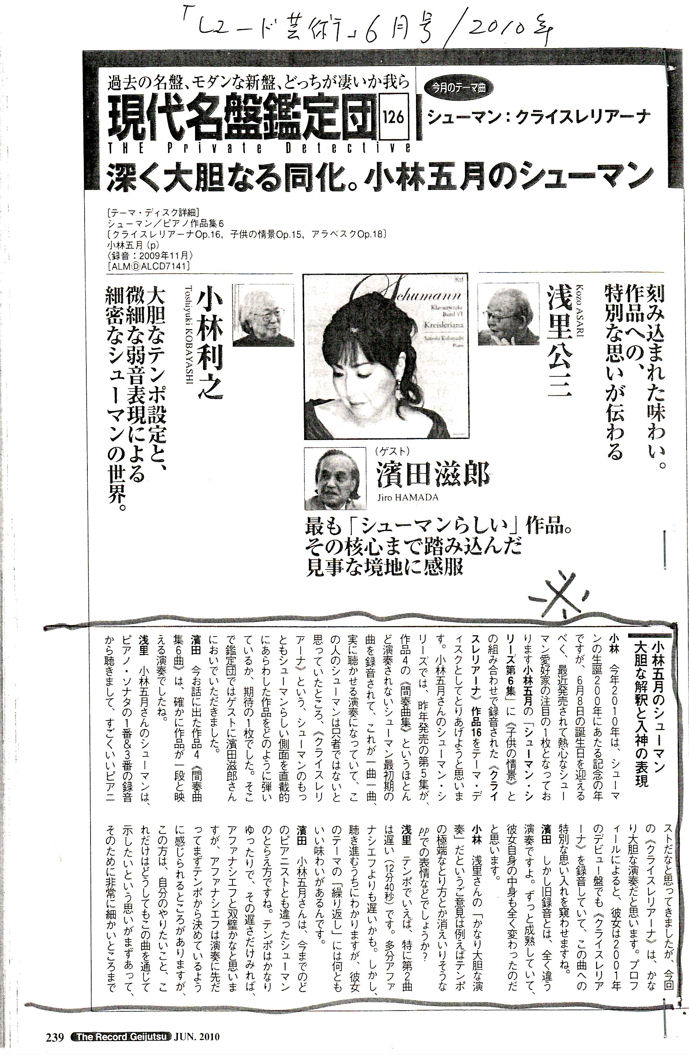 「レコード芸術」6月号/2010年
過去の名盤、モダンな新盤、どっちが凄いか我ら
現代名盤鑑定団 126
THE Private Detective
今月のテーマ曲
シューマン：クライスレリアーナ
深く大胆なる同化。小林五月のシューマン
[テーマ・ディスク詳細]
シューマン／ピアノ作品集6
〔クライスレリアーナOp.16、子供の情景Op.15、アラベスクOp.18〕
小林五月(p)
〈録音：2009年11月〉
[ALMⒹALCD7141]
刻み込まれた味わい。
作品への、
特別な思いが伝わる
浅里公三
Kozo ASARI
Schumann
Klavierwerke
Band VI
Kreisleriana
Piano
小林利之
Toshiyuki KOBAYASHI
大胆なテンポ設定と、
微細な弱音表現による
細密なシューマンの世界。
(ゲスト)
濱田滋郎
Jiro HAMADA
最も「シューマンらしい」作品。
その核心まで踏み込んだ
見事な境地に感服
※
小林五月のシューマン
大胆な解釈と入神の表現
小林　今年2010年は、シューマ
ンの生誕200年にあたる記念の年
ですが、6月8日の誕生日を迎える
べく、最近発売されて熱心なシュー
マン愛好家の注目の1枚となってお
ります小林五月の「シューマン・シ
リーズ第6集」に《子供の情景》と
の組み合わせで録音された《クライ
スレリアーナ》作品16をテーマ・デ
ィスクとしてとりあげようと思いま
す。小林五月さんのシューマン・シ
リーズでは、昨年発売の第5集が、
作品4の《間奏曲集》というほとん
ど演奏されないシューマン最初期の
曲を録音されて、これが一曲一曲、
実に聴かせる演奏になっていて、こ
の人のシューマンは只者ではないと
思っていたところ、《クライスレリ
アーナ》という、シューマンのもっ
ともシューマンらしい側面を直截的
にあらわした作品をどのように弾い
ているか、期待の1枚でした。そこ
で鑑定団ではゲストに濱田滋郎さん
においでいただきました。
濱田　今お話に出た作品4《間奏曲
集6曲》は、確かに作品が一段と映
える演奏でしたね。
浅里　小林五月さんのシューマンは、
ピアノ・ソナタの1番&3番の録音
から聴きまして、すごくいいピアニ
ストだなと思ってきましたが、今回
の《クライスレリアーナ》は、かな
り大胆な演奏だと思います。プロフ
ィールによると、彼女は2001年
のデビュー盤でも《クライスレリア
ーナ》を録音していて、この曲への
特別な思い入れを窺わせますね。
濱田　しかし旧録音とは、全く違う
演奏ですよ。ずっと成熟していて、
彼女自身の中身も全く変わったのだ
と思います。
小林　浅里さんの「かなり大胆な演
奏」だというご意見は例えばテンポ
の極端なとり方とか消えいりそうな
ppでの表情などでしょうか？
浅里　テンポでいえば、特に第2曲
は遅い（12分40秒）です。多分アファ
ナシエフよりも遅いかも。しかし、
聴き進むうちにわかりますが、彼女
のテーマの「繰り返し」には何とも
いい味わいがあるんです。
濱田　小林五月さんは、今までのど
のピアニストとも違ったシューマン
のとらえ方ですね。テンポはかなり
ゆったりで、その遅さだけみれば、
アファナシエフと双璧かなと思いま
すが、アファナシエフは演奏に先だ
ってまずテンポから決めているよう
に感じられるところがありますが、
この方は、自分のやりたいこと、こ
れだけはどうしてもこの曲を通じて
示したいという思いがまずあって、
そのために非常に細かいところまで
239 The Record Geijutsu JUN. 2010